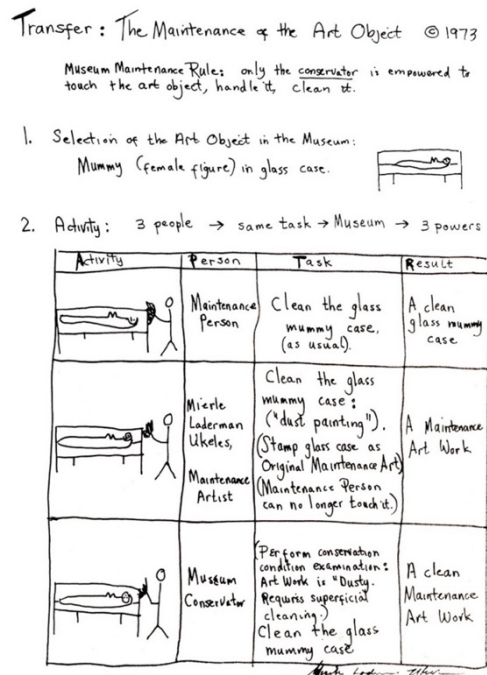 Transfer: The Maintenance of the Art Object © 1973
Museum Maintenance Rule: only the conservator is empowered to
touch the art object, handle it, clean it.
1. Selection of the Art Object in the Museum:
Mummy (female figure) in glass case.
2. Activity: 3 people → same task → Museum → 3 powers
Activity Person Task Result
Maintenance
Person
Clean the glass
mummy case,
(as usual).
A clean
glass mummy
case
Mierle
Laderman
Ukeles,
Maintenance
Artist
Clean the glass
mummy case:
("dust painting").
(Stamp glass case as
Original Maintenance Art)
(Maintenance Person
can no longer touch it.)
A Maintenance
Art Work
Museum
Conservator
(Perform conservation
condition examination:
Art Work is "Dusty.
Requires superficial
cleaning.)
Clean the glass
mummy case
A clean
Maintenance
Art Work